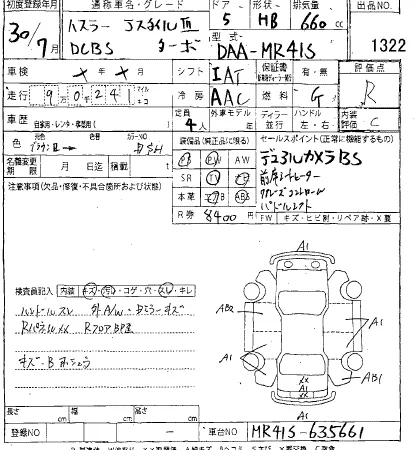 初度登録年月 通称車名・グレード ドア 形状 排気量 出品NO.
30/7月 ハスラー JスタイルIII 5 HB 660cc
DCBS ターボ 型式 DAA-MR41S 1322
車検 メ年メ月 シフト IAT 有・無 評価点
走行 90241 マイル キロ 冷房 AAC 燃料 G R
車歴 自家用・レンタ・事業用( ) 定員 4人 外車モデル ディーラー 並行 ハンドル 左・右 内装評価 C
色 カラーNO 装備品(純正品に限る) セールスポイント(正常に機能するもの)
II→ PS PW AW デュアルカメラBS
名義変更期限 月 日迄 積載 t SR TV ナビ 前席シートヒーター
注意事項(欠品・修復・不具合箇所および状態) 本革 エアB ABS クルーズコントロール
パドルシフト
R券 8400 FW キズ・ヒビ割・リペア跡・X要
検査員記入 内装 キズ・汚・コゲ・穴・スレ・キレ
ハンドルスレ 外A/W・Dミラーキズ
RパネルXX RフロアBP歪
キズ・B ホシュウ
A1
AB2
A1
A1
XX
XX
AB1
A1
長さ cm 幅 cm 高さ cm
登録NO - 車台NO MR41S-635661